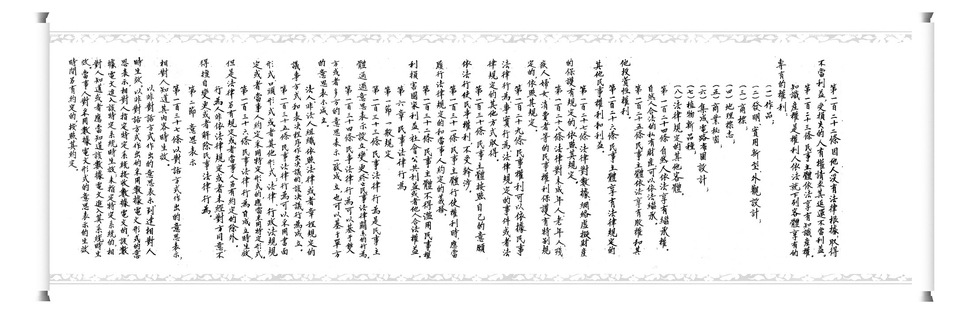 第一百二十二條 因他人沒有法律根據 取得
不當利益 受損失的人有權請求其返還不當利益。
第一百二十三條 民事主體依法享有知識產權。
知識產權是權利人依法就下列客體享有的
專有的權利
(一)作品;
(二)發明、實用新型、外觀設計;
(三)商標;
(四)地理標志;
(五)商業秘密;
(六)集成電路布圖設計;
(七)植物新品種;
(八)法律規定的其他客體。
第一百二十四條 自然人依法享有繼承權。
自然人合法的私有財產 可以依法繼承。
第一百二十五條 民事主體依法享有股權和其
他投資性權利。
第一百二十六條 民事主體享有法律規定的
其他民事權利和利益。
第一百二十七條 法律對數據、網絡虛擬財產
的保護有規定的,依照其規定。
第一百二十八條 法律對未成年人、老年人、殘
疾人、婦女、消費者等的民事權利保護有特別規
定的,依照其規定。
第一百二十九條 民事權利可以依據民事
法律行為、事實行為、法律規定的事件或者法
律規定的其他方式取得。
第一百三十條 民事主體按照自己的意願
依法行使民事權利,不受干涉。
第一百三十一條 民事主體行使權利時,應當
履行法律規定的和當事人約定的義務。
第一百三十二條 民事主體不得濫用民事權
利損害國家利益、社會公共利益或者他人合法權益。
第六章 民事法律行為
第一節 一般規定
第一百三十三條 民事法律行為是民事主
體通過意思表示設立、變更、終止民事法律關系的行為。
第一百三十四條 民事法律行為可以基于雙
方或者多方的意思表示一致成立,也可以基于單方
的意思表示成立。
法人、非法人組織依照法律或者章程規定的
議事方式和表決程序作出決議的,該決議行為成立。
第一百三十五條 民事法律行為可以采用書面
形式、口頭形式或者其他形式;法律、行政法規規
定或者當事人約定采用特定形式的,應當采用特定形式。
第一百三十六條 民事法律行為自成立時生效,
但是法律另有規定或者當事人另有約定的除外。
行為人非依法律規定或者未經對方同意,不
得擅自變更或者解除民事法律行為。
第二節 意思表示
第一百三十七條 以對話方式作出的意思表示,
相對人知道其內容時生效。
以非對話方式作出的意思表示,到達相對人
時生效。以非對話方式作出的采用數據電文形式的意
思表示,相對人指定特定系統接收數據電文的,該數
據電文進入該特定系統時生效;未指定特定系統的,相
對人知道或者應當知道該數據電文進入其系統時生
效。當事人對采用數據電文形式的意思表示的生效
時間另有約定的,按照其約定。